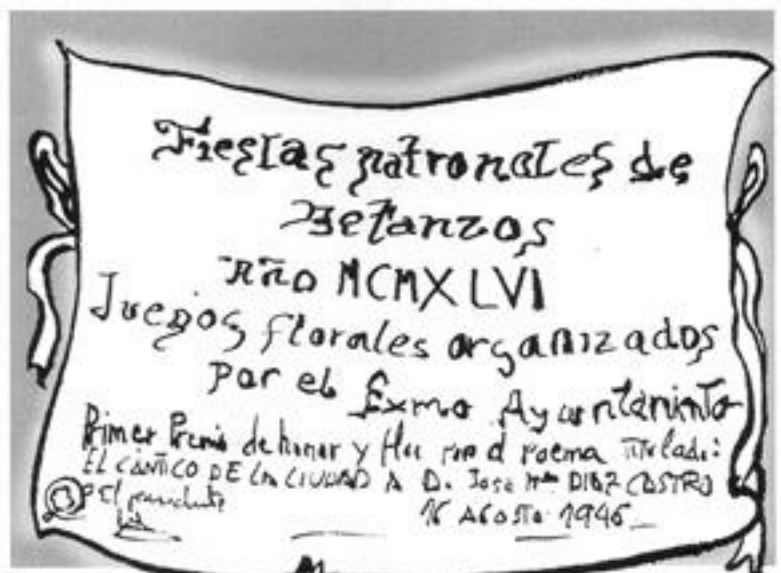 Fiestas patronales de
Betanzos
Año MCMXLVI
Juegos florales organizados
por el Exmo Ayuntamiento
Primer Premio de honor y Flor poema titulado:
EL CÁNTICO DE LA CIUDAD A D. José Mª DIAZ CASTRO
El presidente
16 AGOSTO 1946